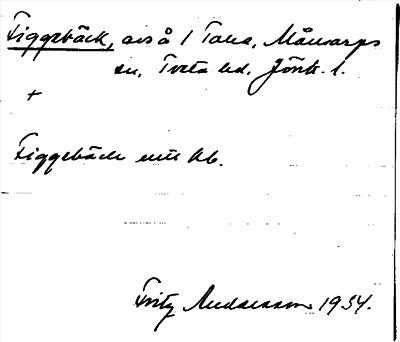 Tiggebäck, avs å 1 Taha, Månsarps
sn, Tveta hd. Jönk. l.
+
Tiggebäck enl kb.
Fritz Andersson 1934.